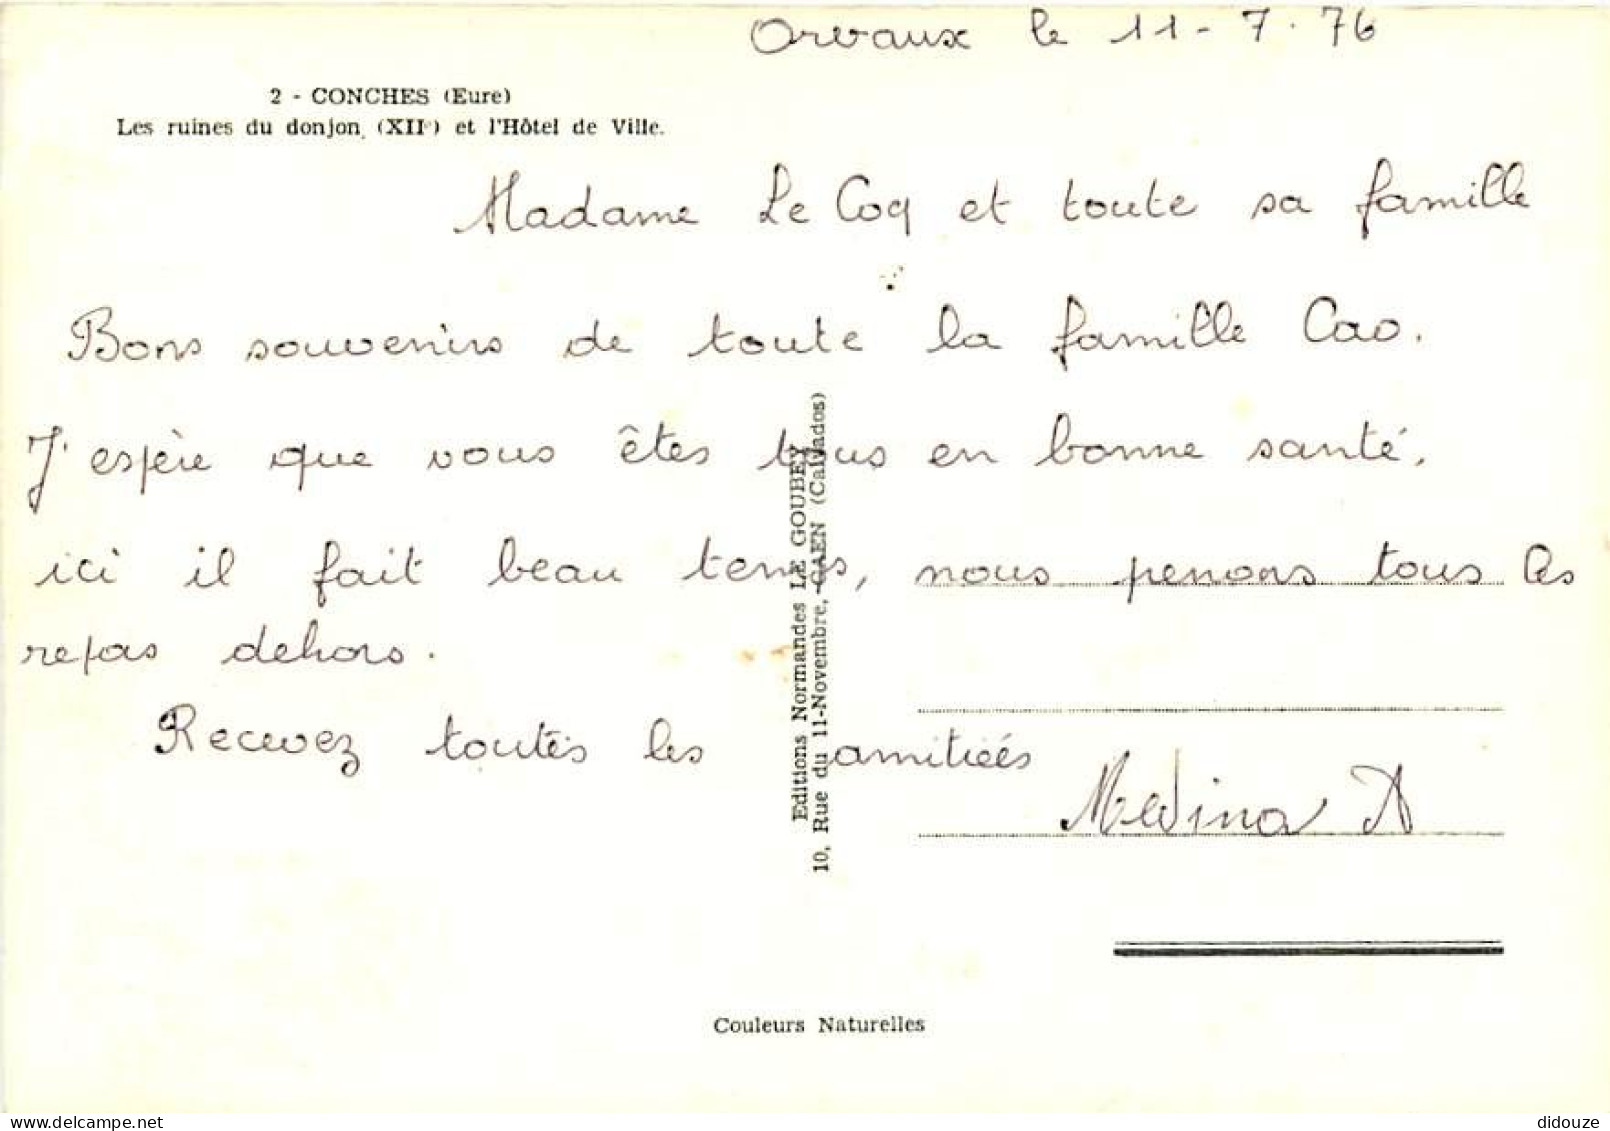 Orvaux le 11-7.76
2 - CONCHES (Eure)
Les ruines du donjon (XIIe) et l'Hôtel de Ville.
Madame Le Coq et toute sa famille
Bons souvenirs de toute la famille Cao.
J'espère que vous êtes tous en bonne santé,
ici il fait beau temps, nous penons tous les
repas dehors.
Recevez toutes les amitiéés
Medina A
Editions Normandes LE GOUBEY
10, Rue du 11-Novembre, CAEN (Calvados)
Couleurs Naturelles
didouze
delcampe.net